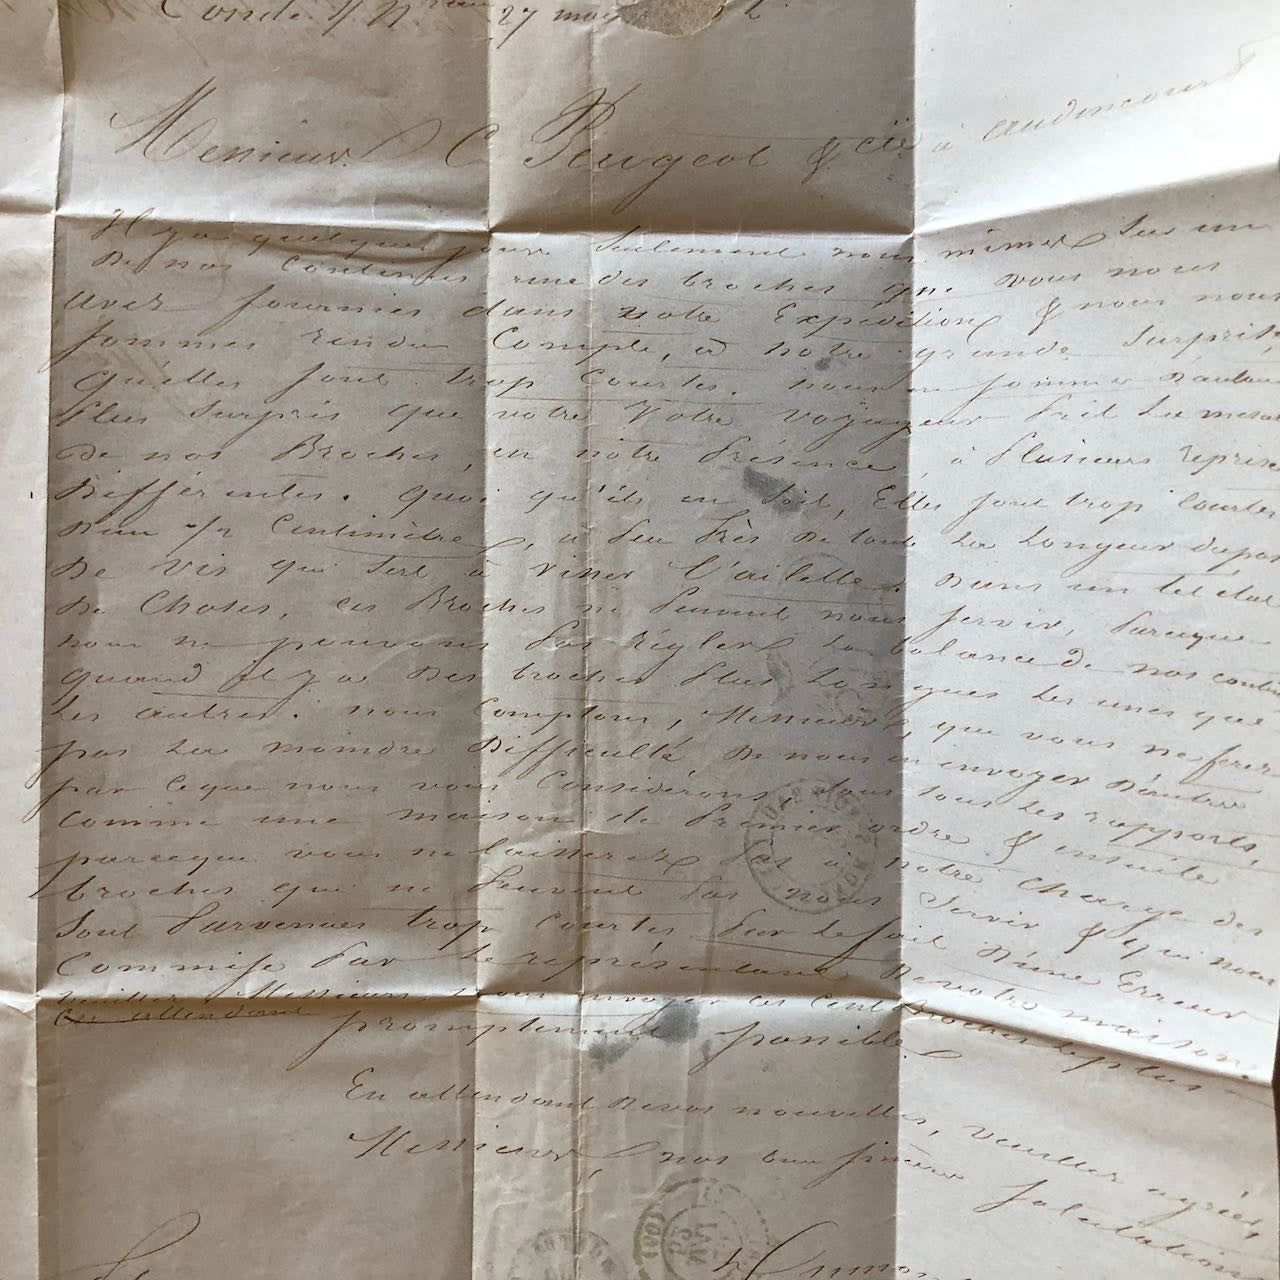 Condé s/ N 27 mai
Messieurs C Peugeot & Cie à audincourt
Il y a quelques jours seulement nous mîmes sur un
De nos continus une des broches que vous nous
avez fournies dans votre Expédition & nous nous
sommes rendu Compte, à notre grande Surprise
qu'elles sont trop Courtes. nous en sommes D'autant
plus surpris que votre Votre voyageur Prit la mesure
de nos Broches, en notre Présence, à Plusieurs reprises
Différentes. quoi qu'il en soit, Elles sont trop Courtes
D'un 1/2 Centimètre, à Peu Près De toute La Longueur du pas
De vis qui sert à visser l'ailette. Dans un tel état
De Choses, ces Broches ne Peuvent nous servir, Parceque
nous ne pouvons Pas régler La balance de nos continus
quand il y a Des broches Plus Longues Les unes que
Les autres. nous Comptons, Messieurs, que vous ne ferez
pas La moindre Difficulté De nous en envoyer D'autres
par ceque nous vous Considérons sous tous Les rapports,
Comme une maison de Premier ordre & ensuite
parceque vous ne laisserez Pas à notre charge des
broches qui ne Peuvent Pas nous Servir & qui nous
Sont Parvenues trop Courtes Par Le fait D'une Erreur
Commise Par Le représentant De votre maison.
veuillez Messieurs, nous envoyer ces Cent Broches Le plus
En attendant promptement possible
En attendant De vos nouvelles, veuillez agréer,
Messieurs, nos bien sincères salutations